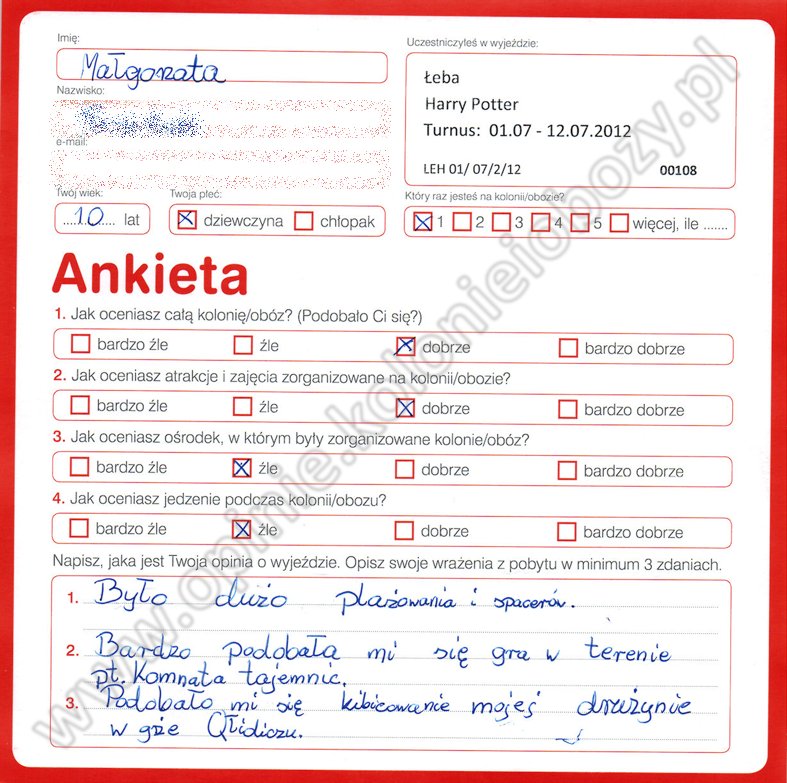 Imię:
Małgorzata
Nazwisko:
e-mail:
Twój wiek:
10 lat
Twoja płeć:
dziewczyna chłopak
Uczestniczyłeś w wyjeździe:
Łeba
Harry Potter
Turnus: 01.07 - 12.07.2012
LEH 01/ 07/2/12 00108
Który raz jesteś na kolonii/obozie?
1 2 3 4 5 więcej, ile .......
Ankieta
1. Jak oceniasz całą kolonię/obóz? (Podobało Ci się?)
bardzo źle źle dobrze bardzo dobrze
2. Jak oceniasz atrakcje i zajęcia zorganizowane na kolonii/obozie?
bardzo źle źle dobrze bardzo dobrze
3. Jak oceniasz ośrodek, w którym były zorganizowane kolonie/obóz?
bardzo źle źle dobrze bardzo dobrze
4. Jak oceniasz jedzenie podczas kolonii/obozu?
bardzo źle źle dobrze bardzo dobrze
Napisz, jaka jest Twoja opinia o wyjeździe. Opisz swoje wrażenia z pobytu w minimum 3 zdaniach.
1. Było dużo plażowania i spacerów.
2. Bardzo podobała mi się gra w terenie
pt. Komnata tajemnic.
3. Podobało mi się kibicowanie mojej drużynie
w grze Qłidiczu.
www.opinie.kolonieiobozy.pl